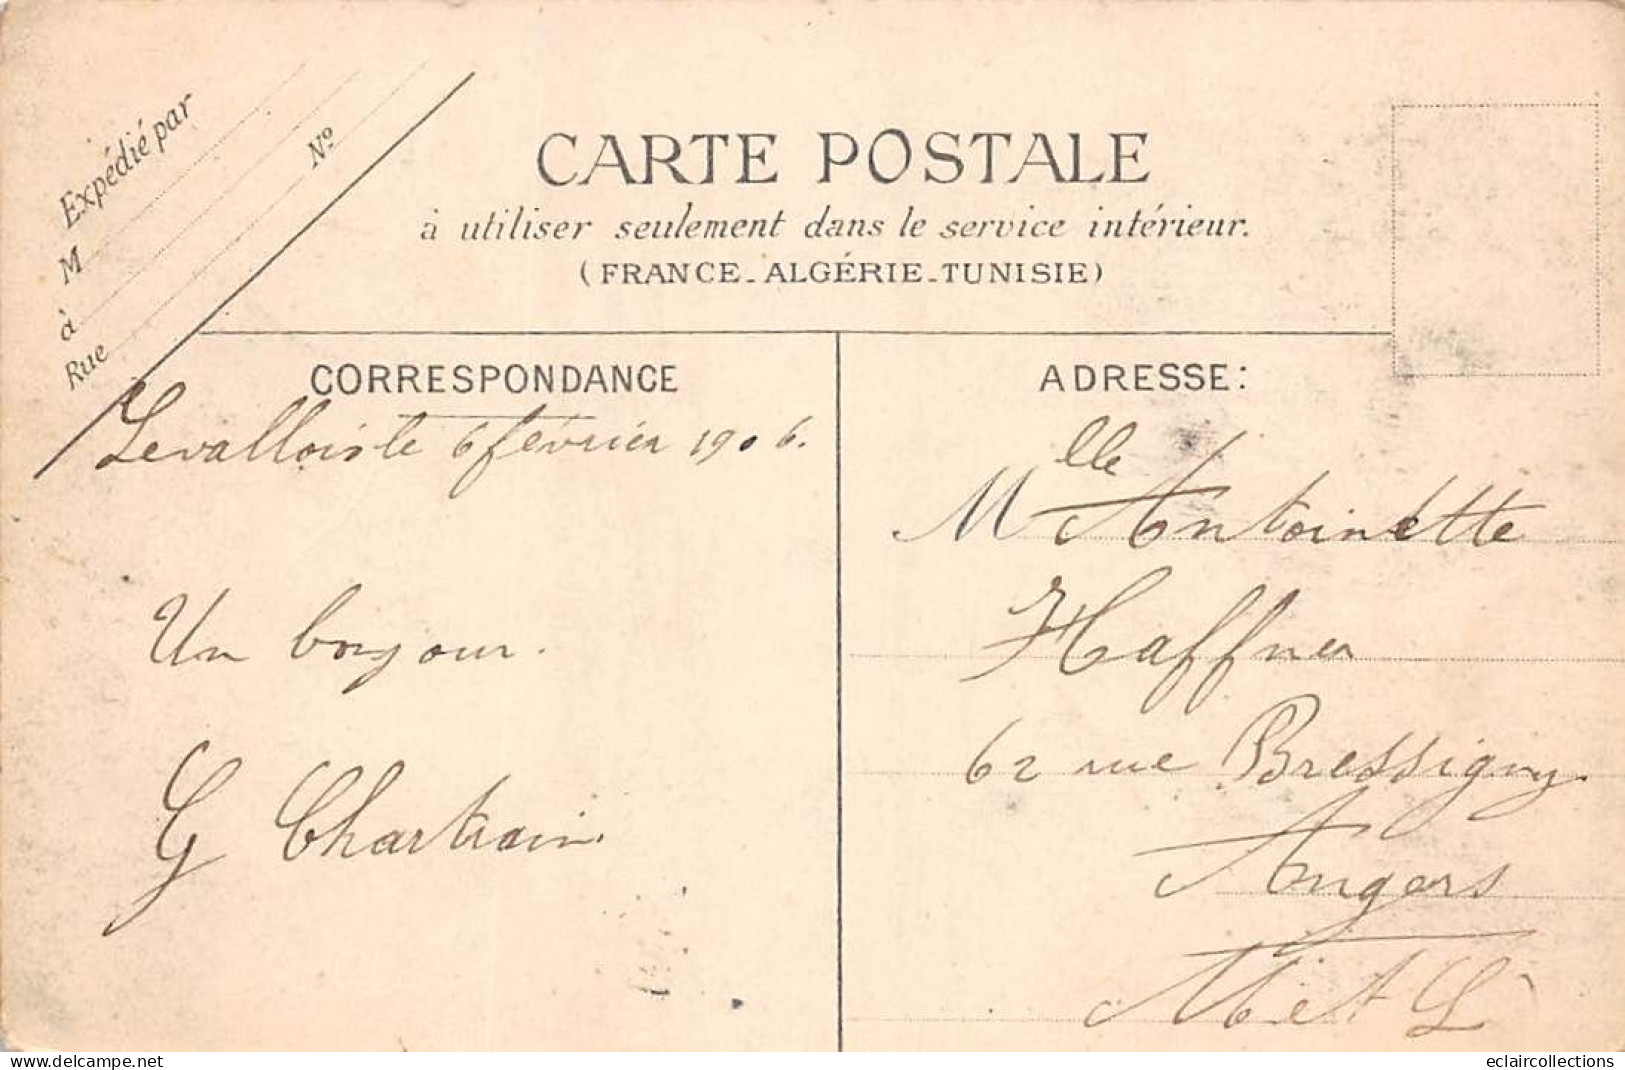 Expédié par
M
à
Rue
Nº
CARTE POSTALE
à utiliser seulement dans le service intérieur.
(FRANCE-ALGÉRIE-TUNISIE)
CORRESPONDANCE
Levallois le 6 février 1906.
Un bonjour.
G Chartrain
ADRESSE:
Mlle Antoinette
Haffner
62 rue Bressigny
Angers
M et L
https://www.delcampe.net
eclaircollections